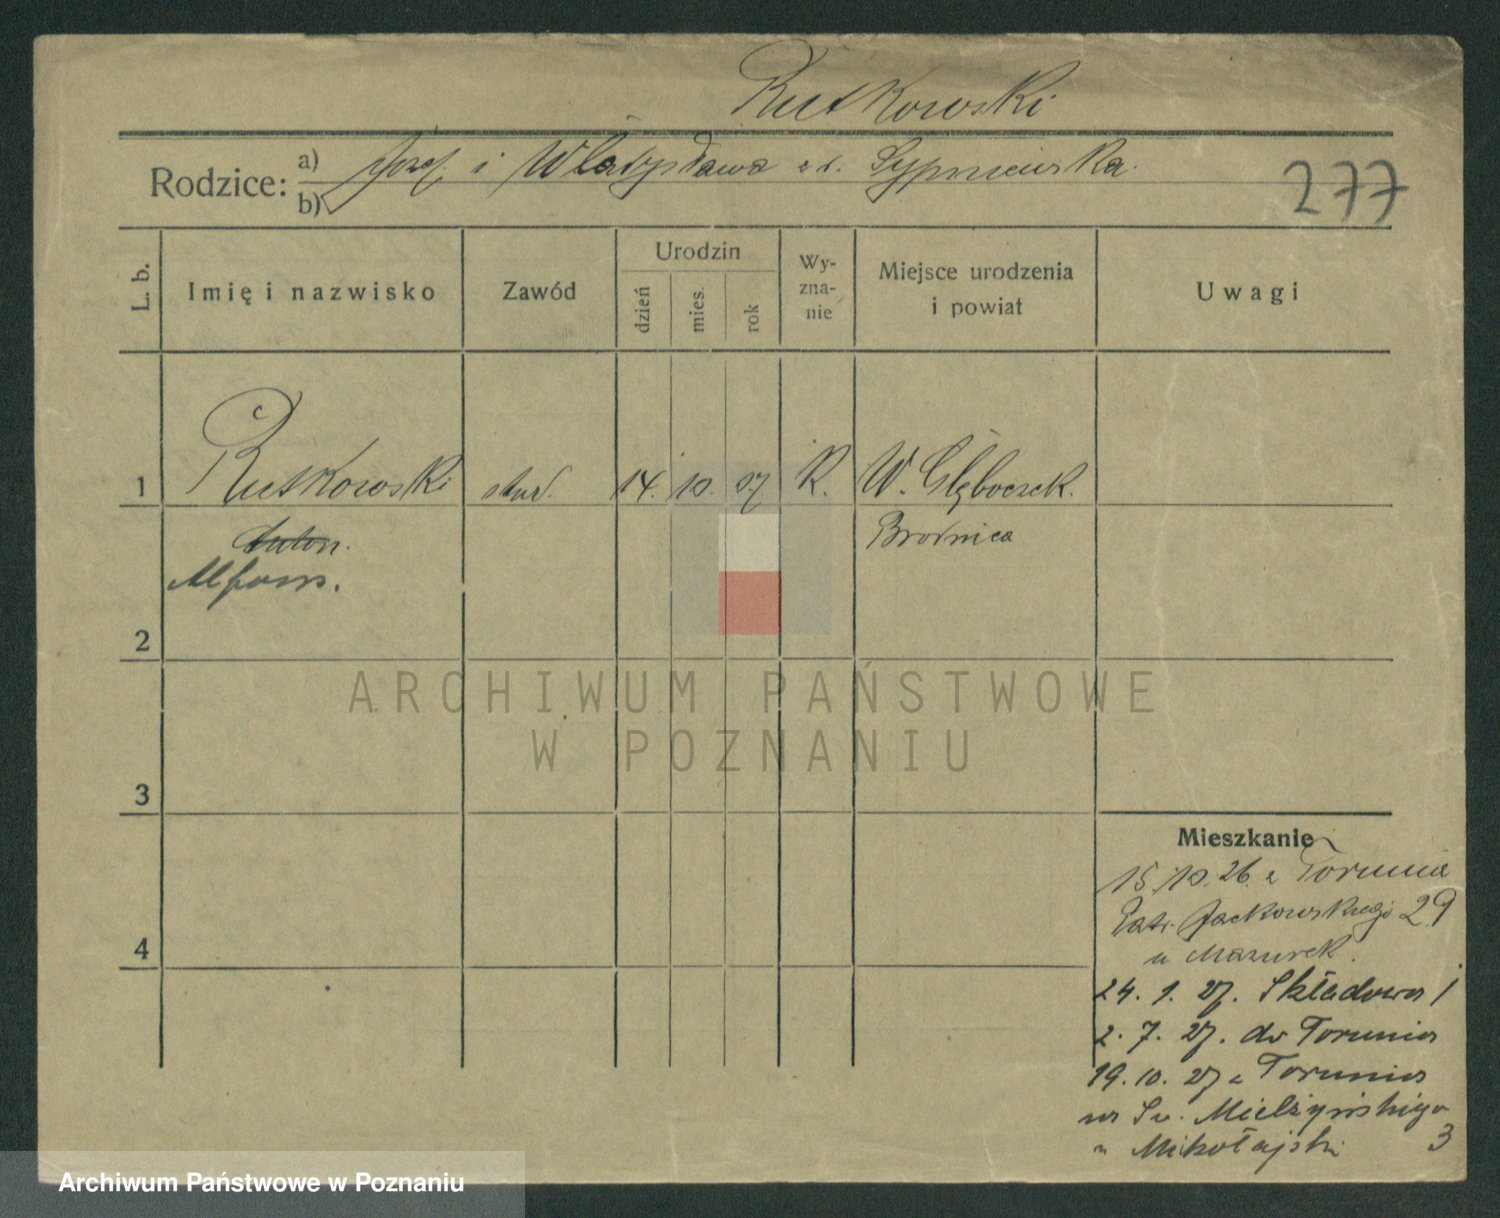 Rutkowski
Rodzice: a) Józef i Władysława z d. Sypniewska.
b)
277
L. b.
Imię i nazwisko
Zawód
Urodzin
dzień
mies.
rok
Wy-
zna-
nie
Miejsce urodzenia
i powiat
Uwagi
1 Rutkowski stud. 14. 10. 07 R. W. Głęboczek.
Anton. Brodnica
Alfons.
2
ARCHIWUM PAŃSTWOWE
W POZNANIU
3
Mieszkanie
15.10.26. z Torunia
Patr. Jackowskiego 29
u Mazurek.
4
24. 1. 27. Składowa 1
2. 7. 27. do Torunia
19. 10. 27 z Torunia
na Sew. Mielżyńskiego
u Mikołajski 3
Archiwum Państwowe w Poznaniu